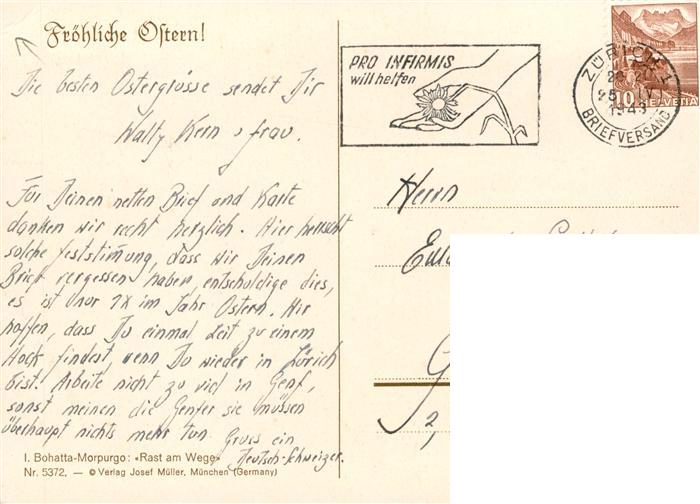 Fröhliche Ostern!
Die besten Ostergrüsse sendet Dir
Walty Kern & frau.
Für Deinen netten Brief und Karte
danken wir recht herzlich. Hier herrscht
solche feststimung, dass wir Deinen
Brief vergessen haben, entschuldige dies,
es ist nur 1x im Jahr Ostern. Wir
hoffen, dass Du einmal Zeit zu einem
Hock findest, wenn Du wieder in Zürich
bist. Arbeite nicht zu viel in Genf,
sonst meinen die Genfer sie müssen
überhaupt nichts mehr tun. Gruss ein
Deutsch-Schweizer.
I. Bohatta-Morpurgo: «Rast am Wege»
Nr. 5372. — © Verlag Josef Müller, München (Germany)
PRO INFIRMIS
will helfen
ZÜRICH 1
25. IV
1943
BRIEFVERSAND
10 HELVETIA
Herrn